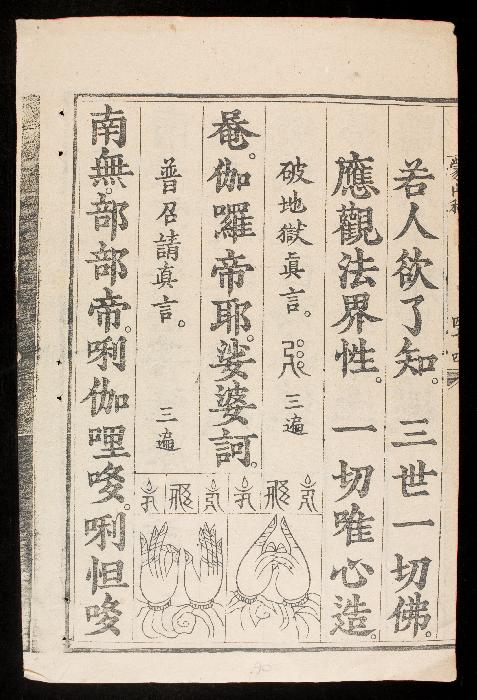 若人欲了知。三世一切佛。
應觀法界性。一切唯心造。
破地獄眞言。三遍
唵。伽囉帝耶。娑婆訶。
普召請真言。三遍
南無。部部帝。唎伽哩哆。唎怛哆